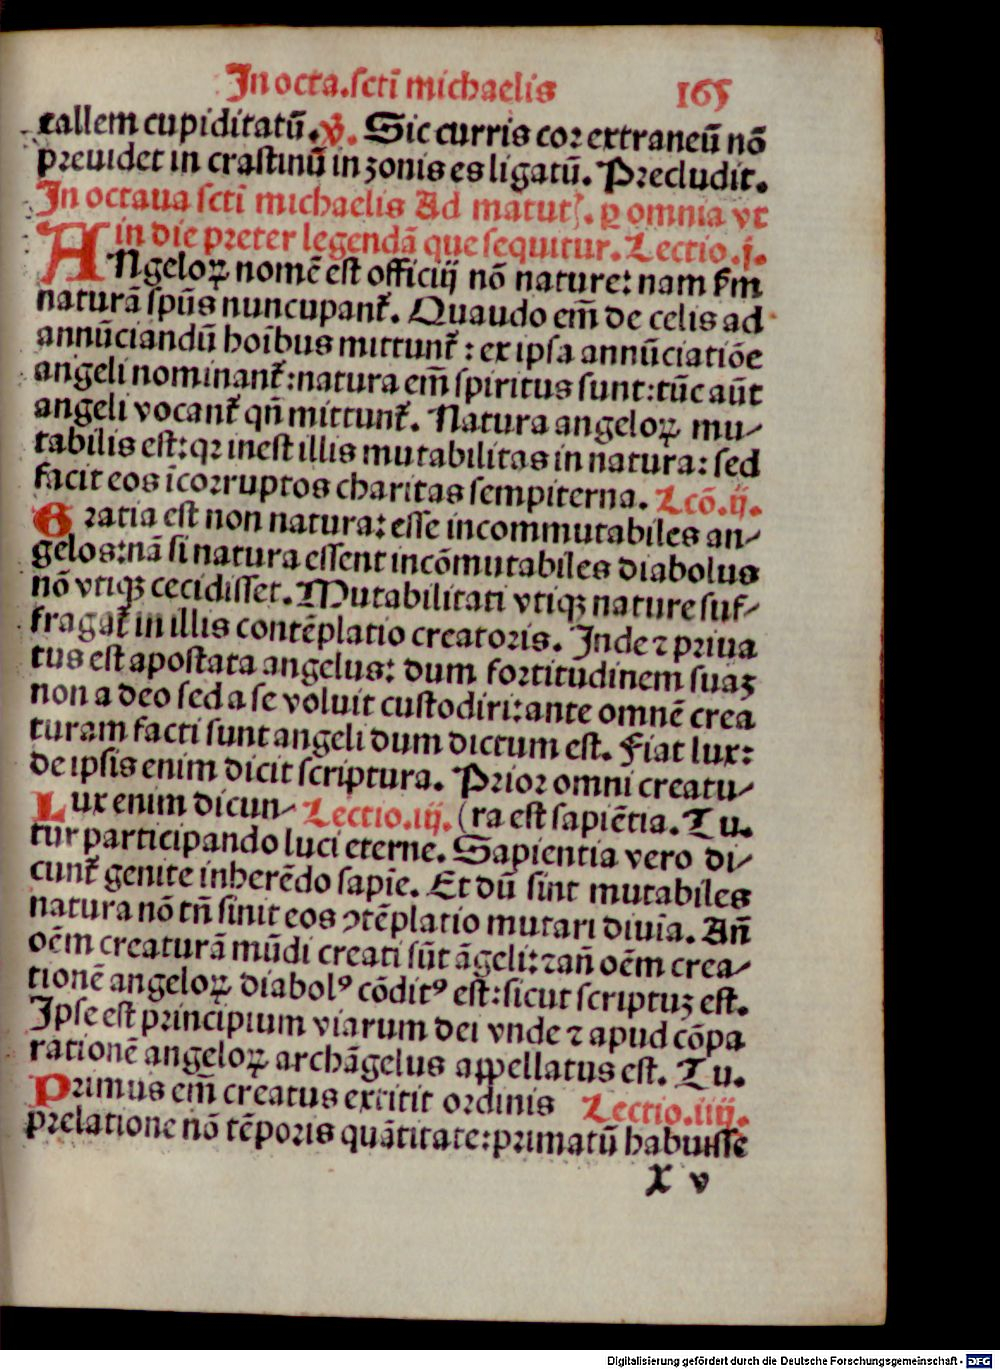 In octa. scti michaelis 165
callem cupiditatū. ℣. Sic curris cor extraneū nō
preuidet in crastinū in zonis es ligatū. Precludit.
In octaua scti michaelis Ad matut͛. ꝑ omnia vt
in die preter legendā que sequitur. Lectio .j.
ANgeloꝝ nomē est officij nō nature: nam ẜm
naturā spūs nuncupant᷑. Quaudo em̄ de celis ad
annūciandū hoībus mittunt᷑: ex ipsa annūciatiōe
angeli nominant᷑: natura em̄ spiritus sunt: tūc aūt
angeli vocant᷑ qn̄ mittunt᷑. Natura angeloꝝ mu-
tabilis est: qꝛ inest illis mutabilitas in natura: sed
facit eos īcorruptos charitas sempiterna. Lcō. ij.
Gratia est non natura: esse incommutabiles an-
gelos: nā si natura essent incōmutabiles diabolus
nō vtiqꝫ cecidisset. Mutabilitati vtiqꝫ nature suf-
fragat᷑ in illis contēplatio creatoris. Inde ⁊ priua
tus est apostata angelus: dum fortitudinem suaꝫ
non a deo sed a se voluit custodiri: ante omnē crea
turam facti sunt angeli dum dictum est. Fiat lux:
de ipsis enim dicit scriptura. Prior omni creatu-
Lux enim dicun- Lectio .iij. (ra est sapiētia. Tu.
tur participando luci eterne. Sapientia vero di-
cunt᷑ genite inherēdo sapīe. Et dū sint mutabiles
natura nō tn̄ sinit eos ꝯtēplatio mutari diuīa. An̄
oēm creaturā mūdi creati sūt āgeli: ⁊ an̄ oēm crea-
tionē angeloꝝ diabolꝰ cōditꝰ est: sicut scriptuꝫ est.
Ipse est principium viarum dei vnde ⁊ apud cōpa
rationē angeloꝝ archāgelus appellatus est. Tu.
Primus em̄ creatus extitit ordinis Lectio .iiij.
prelatione nō tēporis quātitate: primatū habuisse
X v
Digitalisierung gefördert durch die Deutsche Forschungsgemeinschaft - DFG